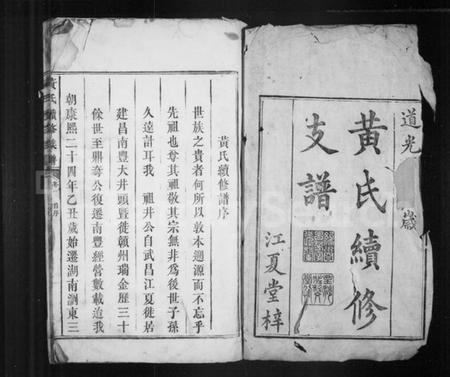 道光 歲
黃氏續修
支譜
江夏堂梓
黃氏續修譜序
世族之貴者何所以敦本遡源而不忘乎
先祖也尊其祖敬其宗無非為後世子孫
久遠計耳我 祖井公自武昌江夏徙居
建昌南豐大井頭暨徙贛州瑞金歷三十
餘世至鼎奇公復遷南豐經營數載迨我
朝康熙二十四年乙丑歲始遷湖南瀏東三
黃氏續修族譜